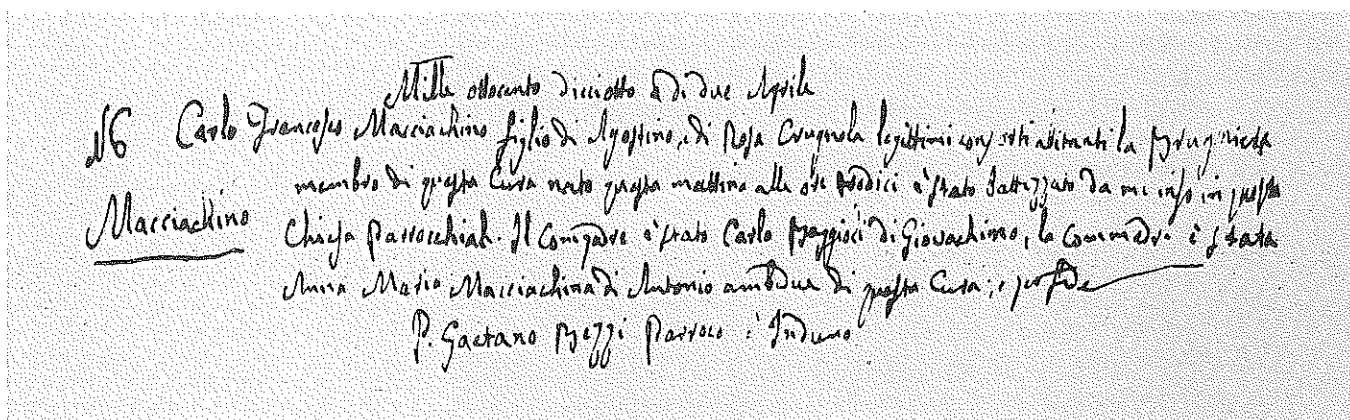 Mille ottocento dicciotto a di due Aprile
N6 Carlo Francesco Macciachino figlio di Agostino, e di Rosa Crugnola legittimi consorti abitanti la
membro di questa Cura nato questa mattina alle ore è stato battezzato da me in questa
Macciachino Chiesa Parrocchiale. Il Compadre è stato Carlo di Giovachimo, la Commadre è stata
Anna Maria Macciachina di Antonio ambdue di questa Cura; e per fede
P. Gaetano Bozzi Parroco Induno